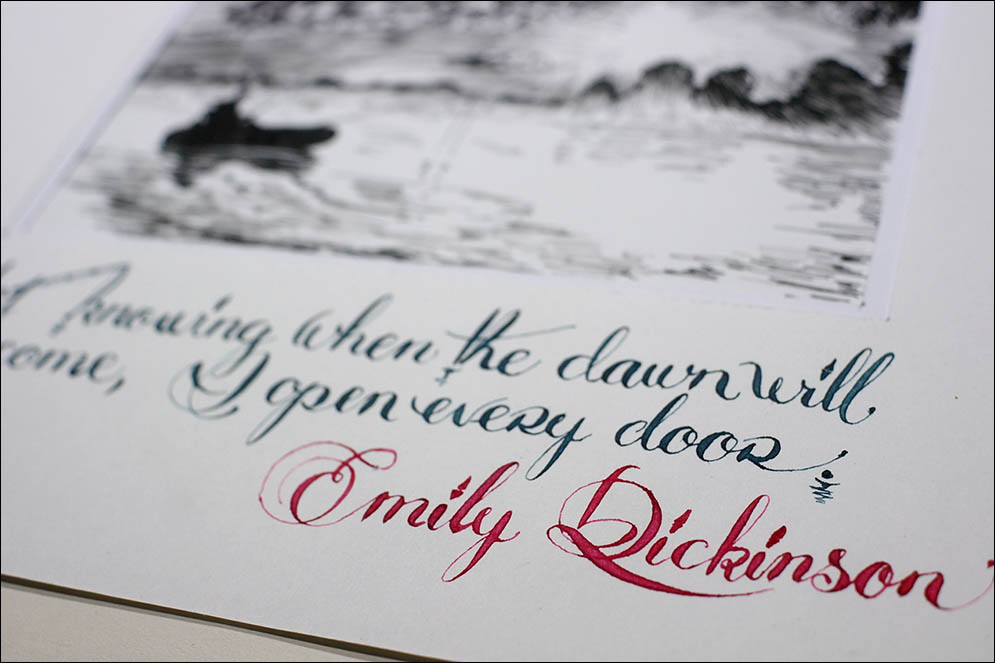 knowing when the dawn will
come, I open every door.
Emily Dickinson